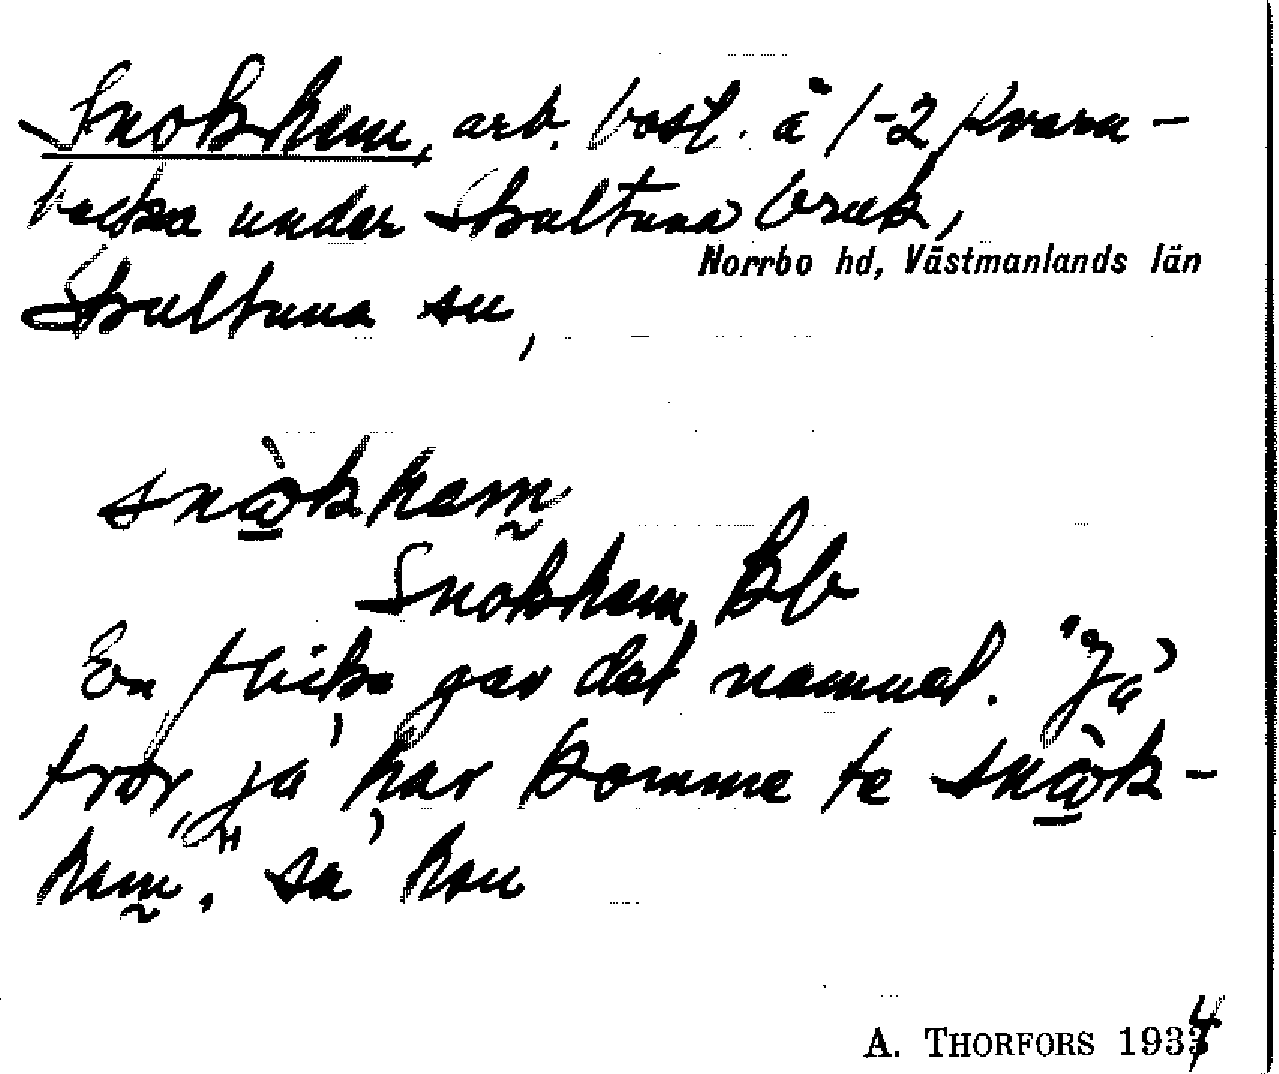 Snokhem, arb. bost. å 1-2 Kvarn-
backa under Skultuna bruk,
Norrbo hd, Västmanlands län
Skultuna sn,
snò̱khem̰
Snokhem Bb
En flicka gav det namnet. "Ja'
tror, ja' har komme te snò̱k-
hem̰". sa' hon
A. THORFORS 1934